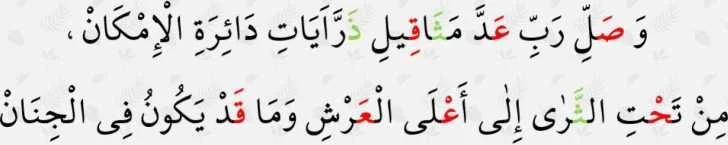 وَصَلِّ رَبِّ عَدَّ مَثَاقِيلِ ذَرَّايَاتِ دَائِرَةِ الْإِمْكَانْ ،
مِنْ تَحْتِ الثَّرٰى إِلٰى أَعْلَى الْعَرْشِ وَمَا قَدْ يَكُونُ فِى الْجِنَانْ